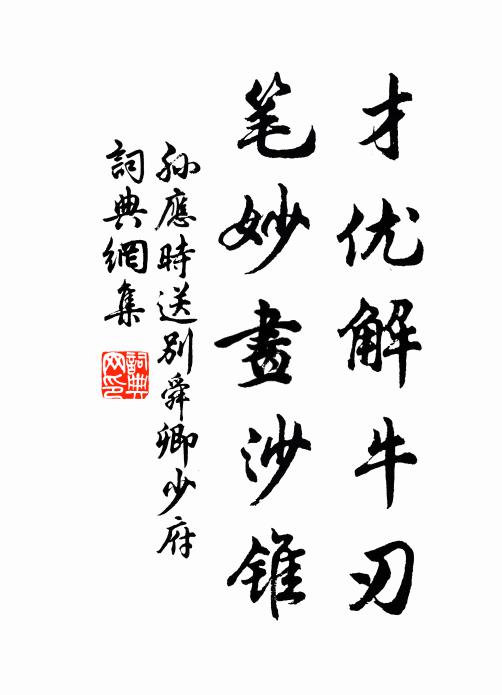 才优解牛刃
笔妙畫沙錐
孙應時送别舜卿少府
詞典網集
詞典
网印